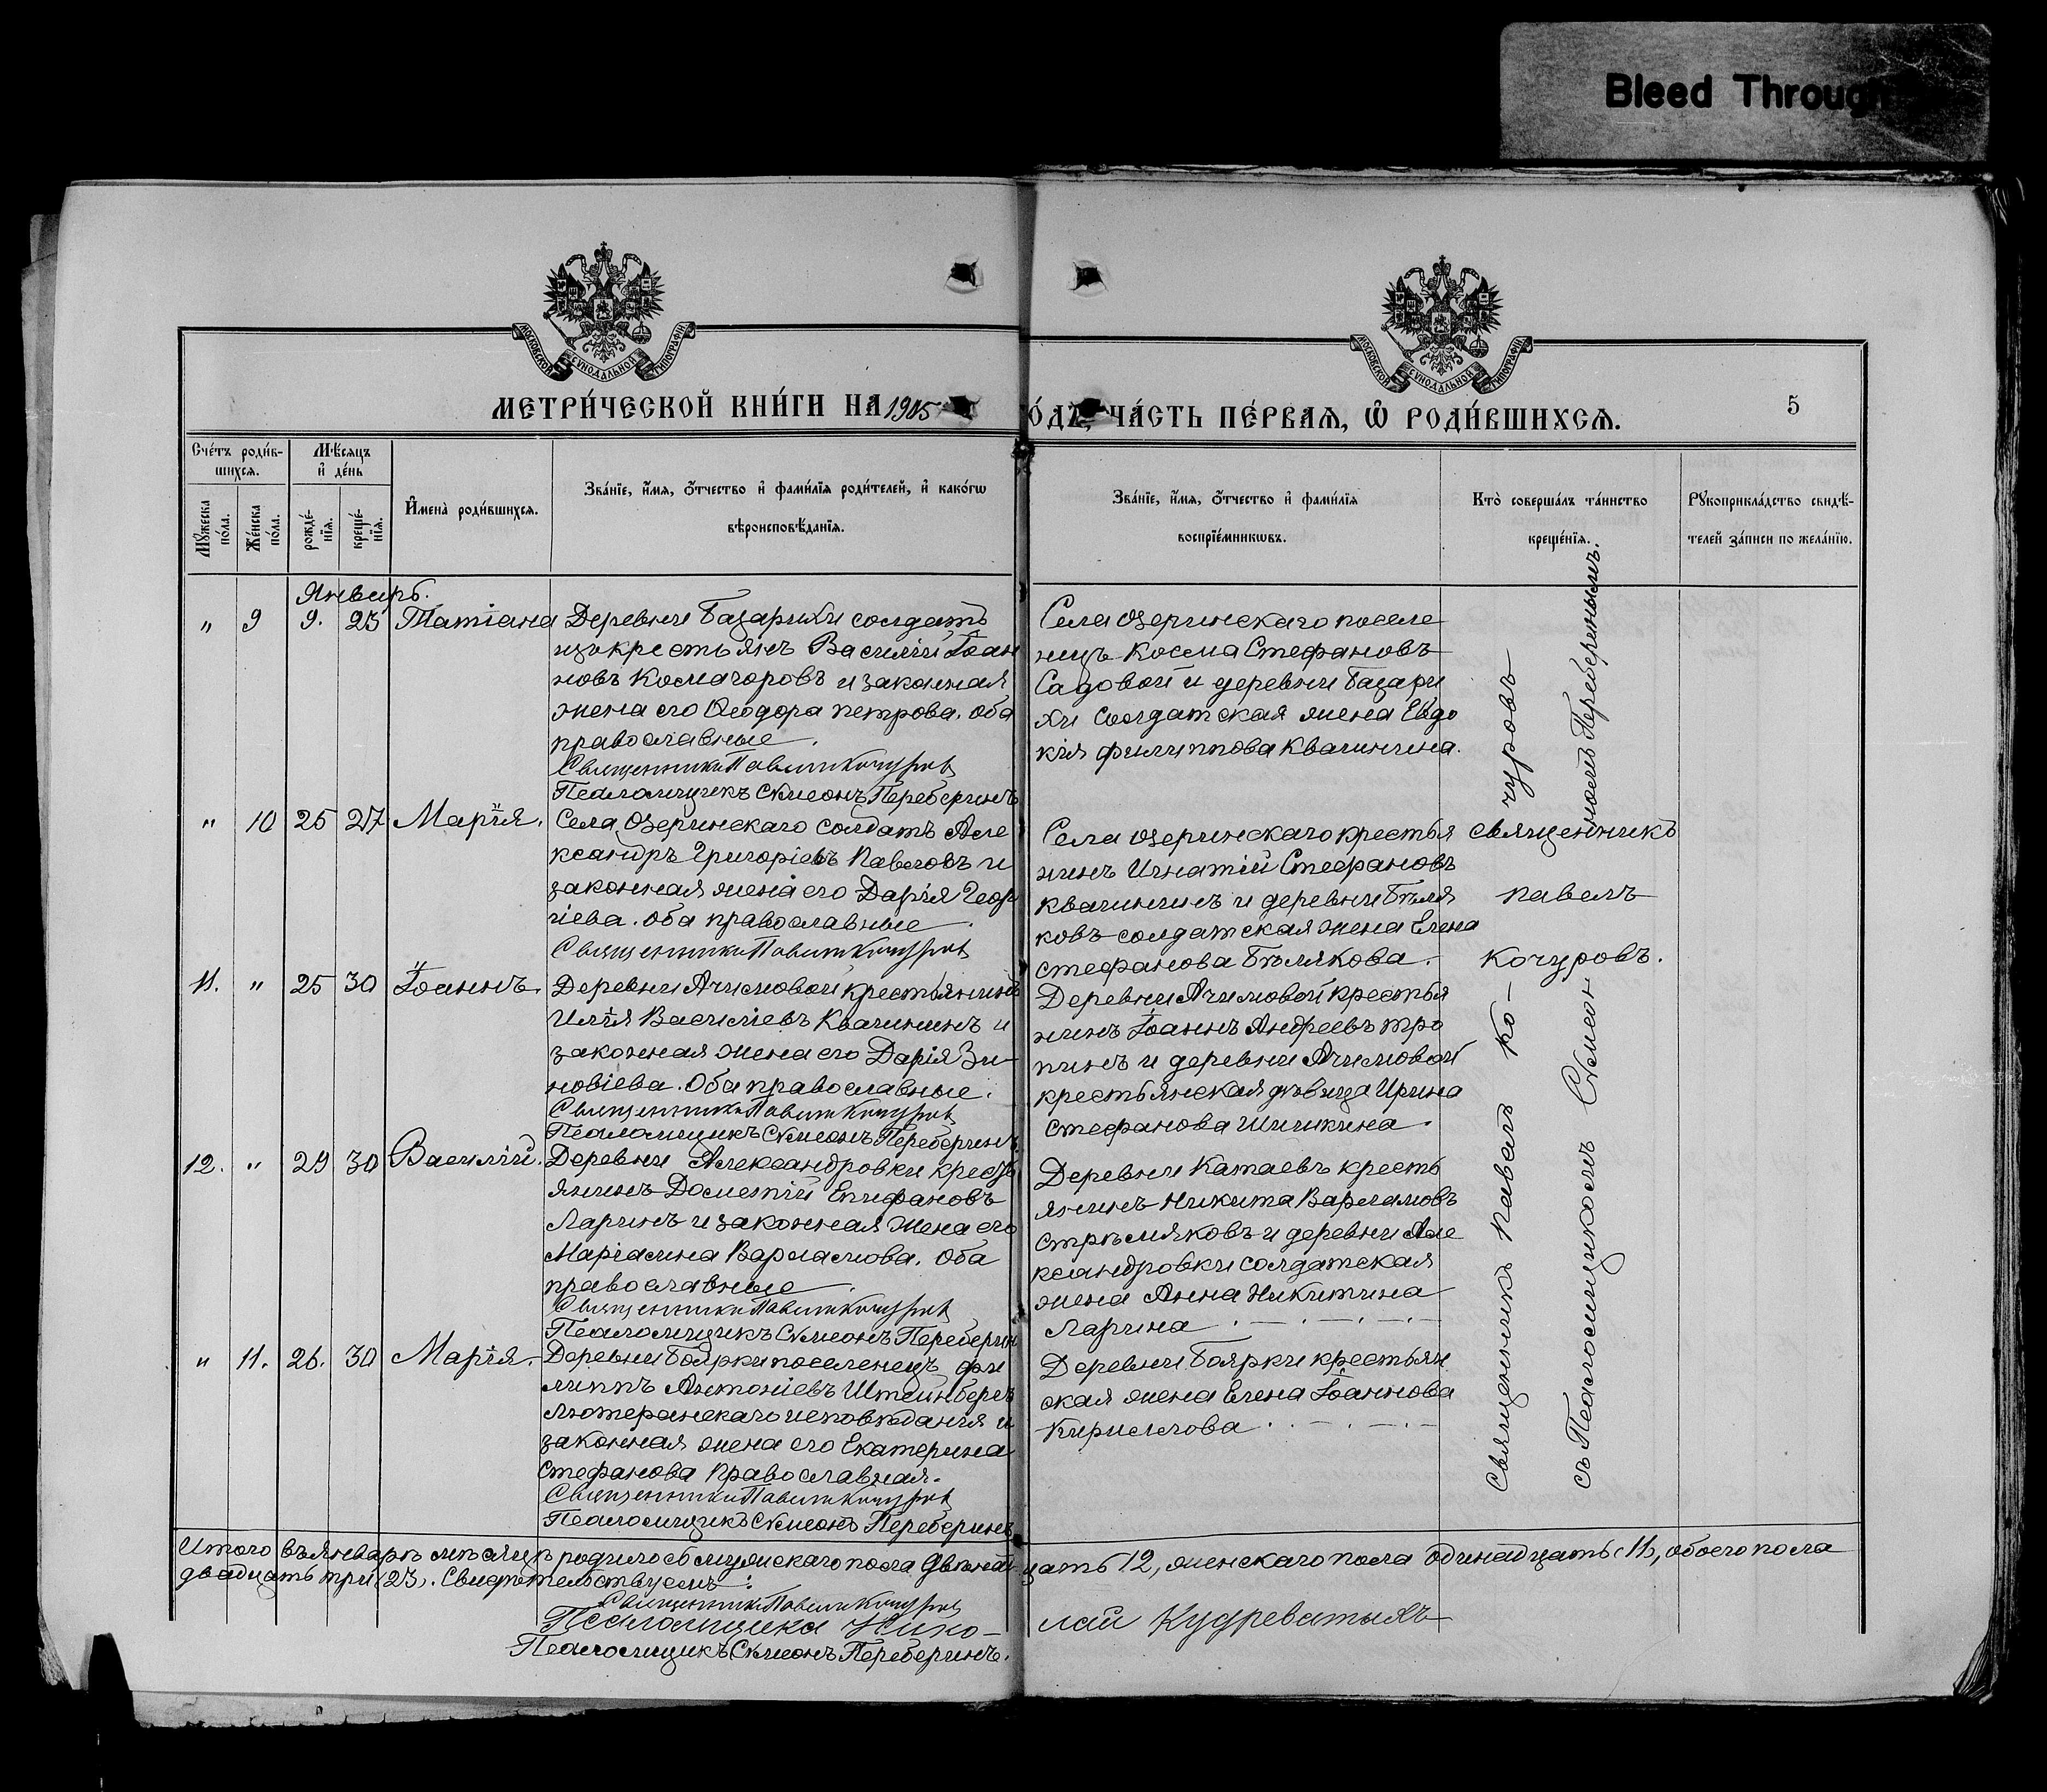 Bleed Through
МОСКОВСКОЙ СѴНОДАЛЬНОЙ ТИПОГРАФІИ
МОСКОВСКОЙ СѴНОДАЛЬНОЙ ТИПОГРАФІИ
МЕТРИ́ЧЕСКОЙ КНИ́ГИ НА 1905
О́ДЪ, ЧА́СТЬ ПЕ́РВАѦ, Ѽ РОДИ́ВШИХСѦ.
5
Сче́тъ роди́в-
шихсѧ.
Мѣ́сѧцъ
и҆ де́нь
Мꙋ́жеска
по́ла.
Же́нска
по́ла.
рожде́-
нїѧ.
креще́-
нїѧ.
И҆мена̀ роди́вшихсѧ.
Зва́нїе, и҆́мѧ, ѻ҆́тчество и҆ фами́лїѧ роди́телей, и҆ како́гѡ
вѣроисповѣ́данїѧ.
Зва́нїе, и҆́мѧ, ѻ҆́тчество и҆ фами́лїѧ
воспрїе́мникѡвъ.
Кто̀ соверша́лъ та́инство
креще́нїѧ.
Рꙋкоприкла́дство свидѣ́-
телей за́писи по жела́нїю.
Январь.
" 9 9. 23 Татіана
Деревни Базарихи солдатъ
изъ крестьянъ Василій Іоан
новъ Косматоровъ и законная
жена его Ѳеодора Петрова. Оба
православные.
Священникъ Павелъ Кочуровъ
Псаломщикъ Симеонъ Переберинъ
Села Озеринскаго поселе
нецъ Косма Стефановъ
Садовой и деревни Базари
хи солдатская жена Евдо
кія Филиппова Квашнина.
" 10 25 27 Марія.
Села Озеринскаго солдатъ Але
ксандръ Григоріевъ Павловъ и
законная жена его Дарія Геор
гіева. Оба православные.
Священникъ Павелъ Кочуровъ
Села Озеринскаго крестья
нинъ Игнатій Стефановъ
Квашнинъ и деревни Бѣля
ковъ солдатская жена Елена
Стефанова Бѣлякова.
священникъ
Павелъ
Кочуровъ.
11. " 25 30 Іоаннъ.
Деревни Ачимовой крестьянинъ
Илія Василіевъ Квашнинъ и
законная жена его Дарія Зи-
новіева. Оба православные.
Священникъ Павелъ Кочуровъ
Псаломщикъ Симеонъ Переберинъ
Деревни Ачимовой крестья
нинъ Іоаннъ Андреевъ Тро
пинъ и деревни Ачимовой
крестьянская дѣвица Ирина
Стефанова Шишкина.
12. " 29 30 Василій.
Деревни Александровки кресть
янинъ Дометій Епифановъ
Ларинъ и законная жена его
Маріамна Варламова. Оба
православные.
Священникъ Павелъ Кочуровъ
Псаломщикъ Симеонъ Переберин
Деревни Катаевъ кресть
янинъ Никита Варламовъ
Стрѣляковъ и деревни Але
ксандровки солдатская
жена Анна Никитина
Ларина
" 11. 26. 30 Марія.
Деревни Боярки поселенецъ Фи
липпъ Антоніевъ Штейнбергъ
лютеранскаго исповѣданія и
законная жена его Екатерина
Стефанова православная.
Священникъ Павелъ Кочуровъ
Псаломщикъ Симеонъ Переберинъ
Деревни Боярки крестьян
ская жена Елена Іоаннова
Кириллова
Священникъ Павелъ Ко-чуровъ
съ Псаломщикомъ Симеономъ Переберинымъ.
Итого въ январѣ мѣсяцѣ родилось мужскаго пола двѣнадцать 12, женскаго пола одинадцать (11), обоего пола
двадцать три (23). Свидѣтельствуемъ:
Священникъ Павелъ Кочуровъ
Псаломщикъ Нико-лай Кудреватыхъ
Псаломщикъ Симеонъ Переберинъ.